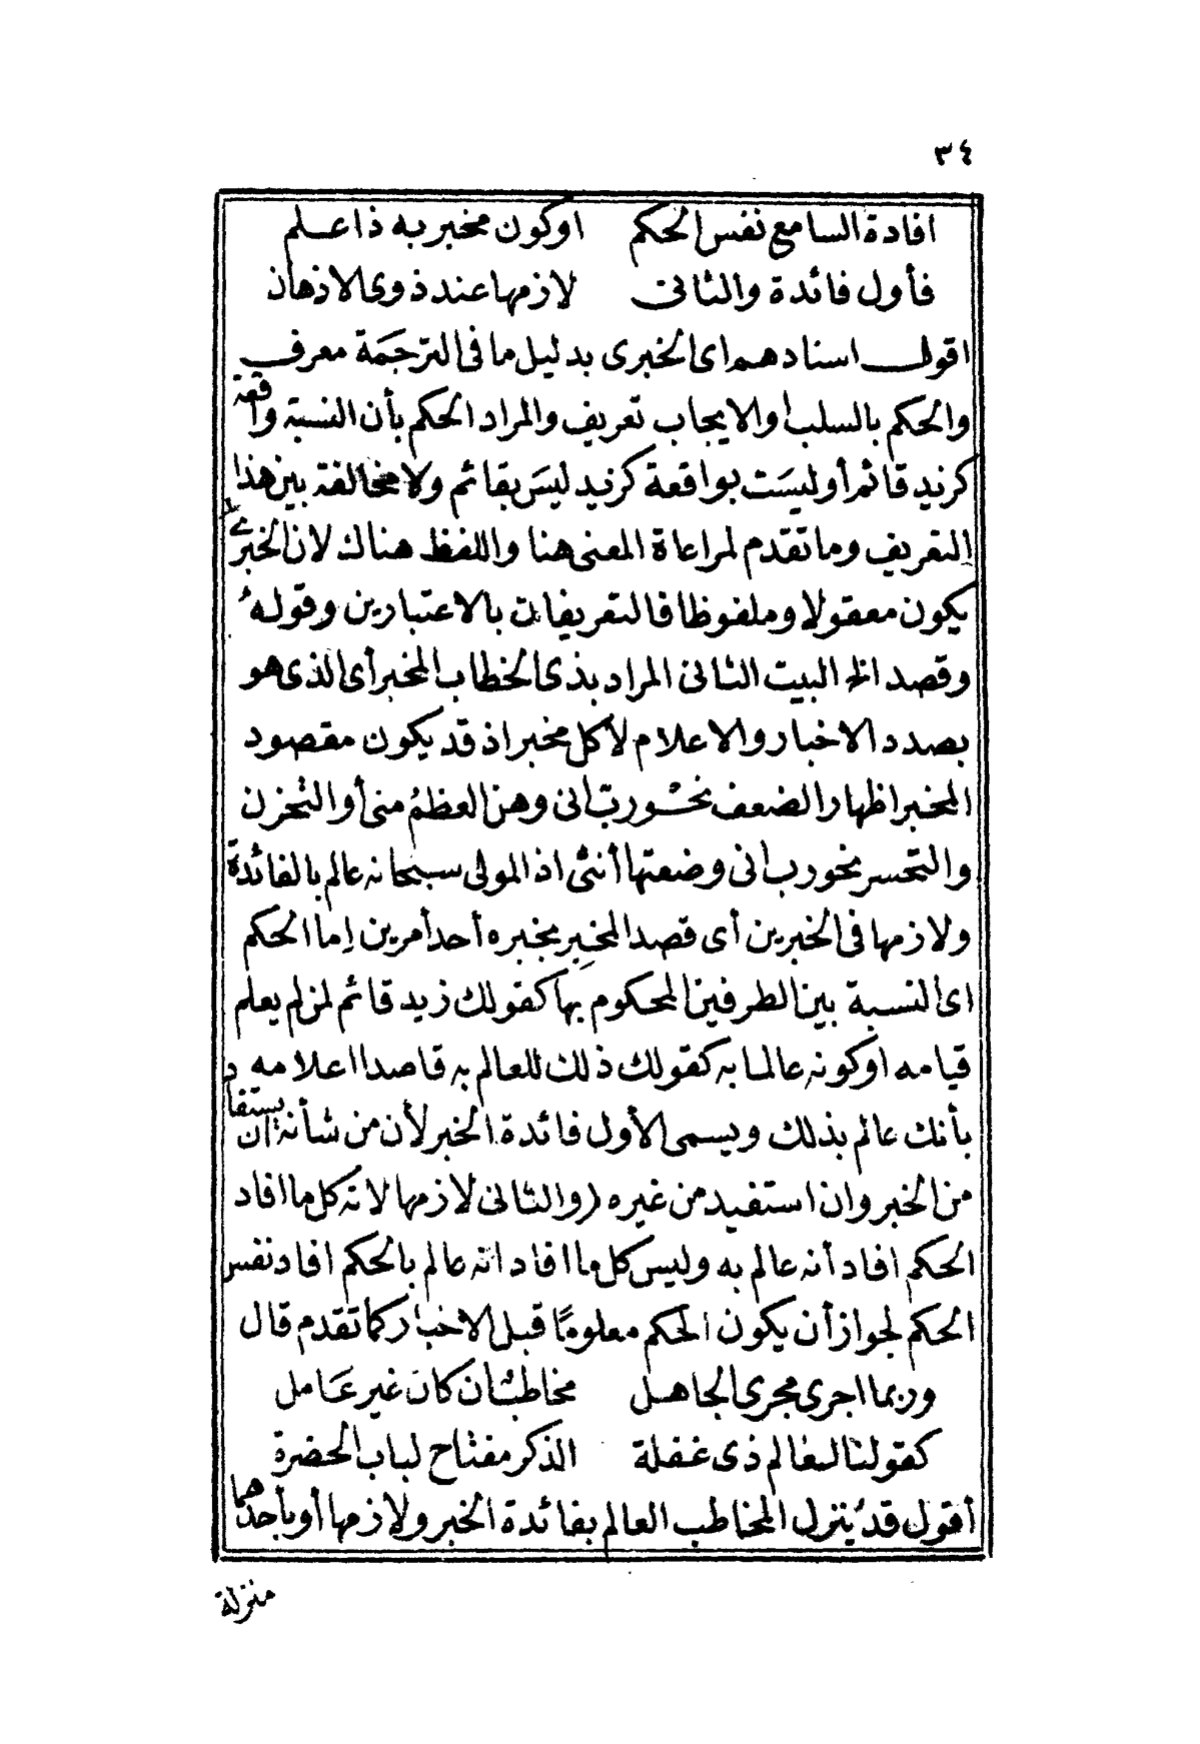 ٣٤
افادة السامع نفس الحكم اوكون مخبر به ذا علم
فأول فائدة والثانى لازمها عند ذوى الاذهان
اقول اسنادهم اى الخبرى بدليل ما فى الترجمة معرف
والحكم بالسلب او الايجاب تعريف والمراد الحكم بأن النسبة واقعة
كزيد قائم أو ليست بواقعة كزيد ليس بقائم ولا مخالفة بين هذا
التعريف وما تقدم لمراعاة المعنى هنا واللفظ هناك لان الخبر
يكون معقولا وملفوظا فالتعريفان بالاعتبارين وقوله
وقصد الخ البيت الثانى المراد بذى الخطاب المخبر أى الذى هو
بصدد الاخبار والاعلام لا كل مخبر اذ قد يكون مقصود
المخبر اظهار الضعف نحو رب انى وهن العظم منى أو التحزن
والتحسر نحو رب انى وضعتها أنثى اذ المولى سبحانه عالم بالفائدة
ولازمها فى الخبرين أى قصد المخبر بخبره أحد أمرين إما الحكم
اى النسبة بين الطرفين المحكوم بها كقولك زيد قائم لمن لم يعلم
قيامه او كونه عالما به كقولك ذلك للعالم به قاصدا اعلامه
بأنك عالم بذلك ويسمى الأول فائدة الخبر لأن من شأنه ان يستفاد
من الخبر وان استفيد من غيره (والثانى لازمها لانه كل ما افاد
الحكم افاد أنه عالم به وليس كل ما افاد انه عالم بالحكم افاد نفس
الحكم لجواز أن يكون الحكم معلومًا قبل الاخبار كما تقدم قال
وربما اجرى مجرى الجاهل مخاطب ان كان غير عامل
كقولنا لعالم ذى غفلة الذكر مفتاح لباب الحضرة
أقول قد ينزل المخاطب العالم بفائدة الخبر ولازمها أو بأحدهما
منزلة